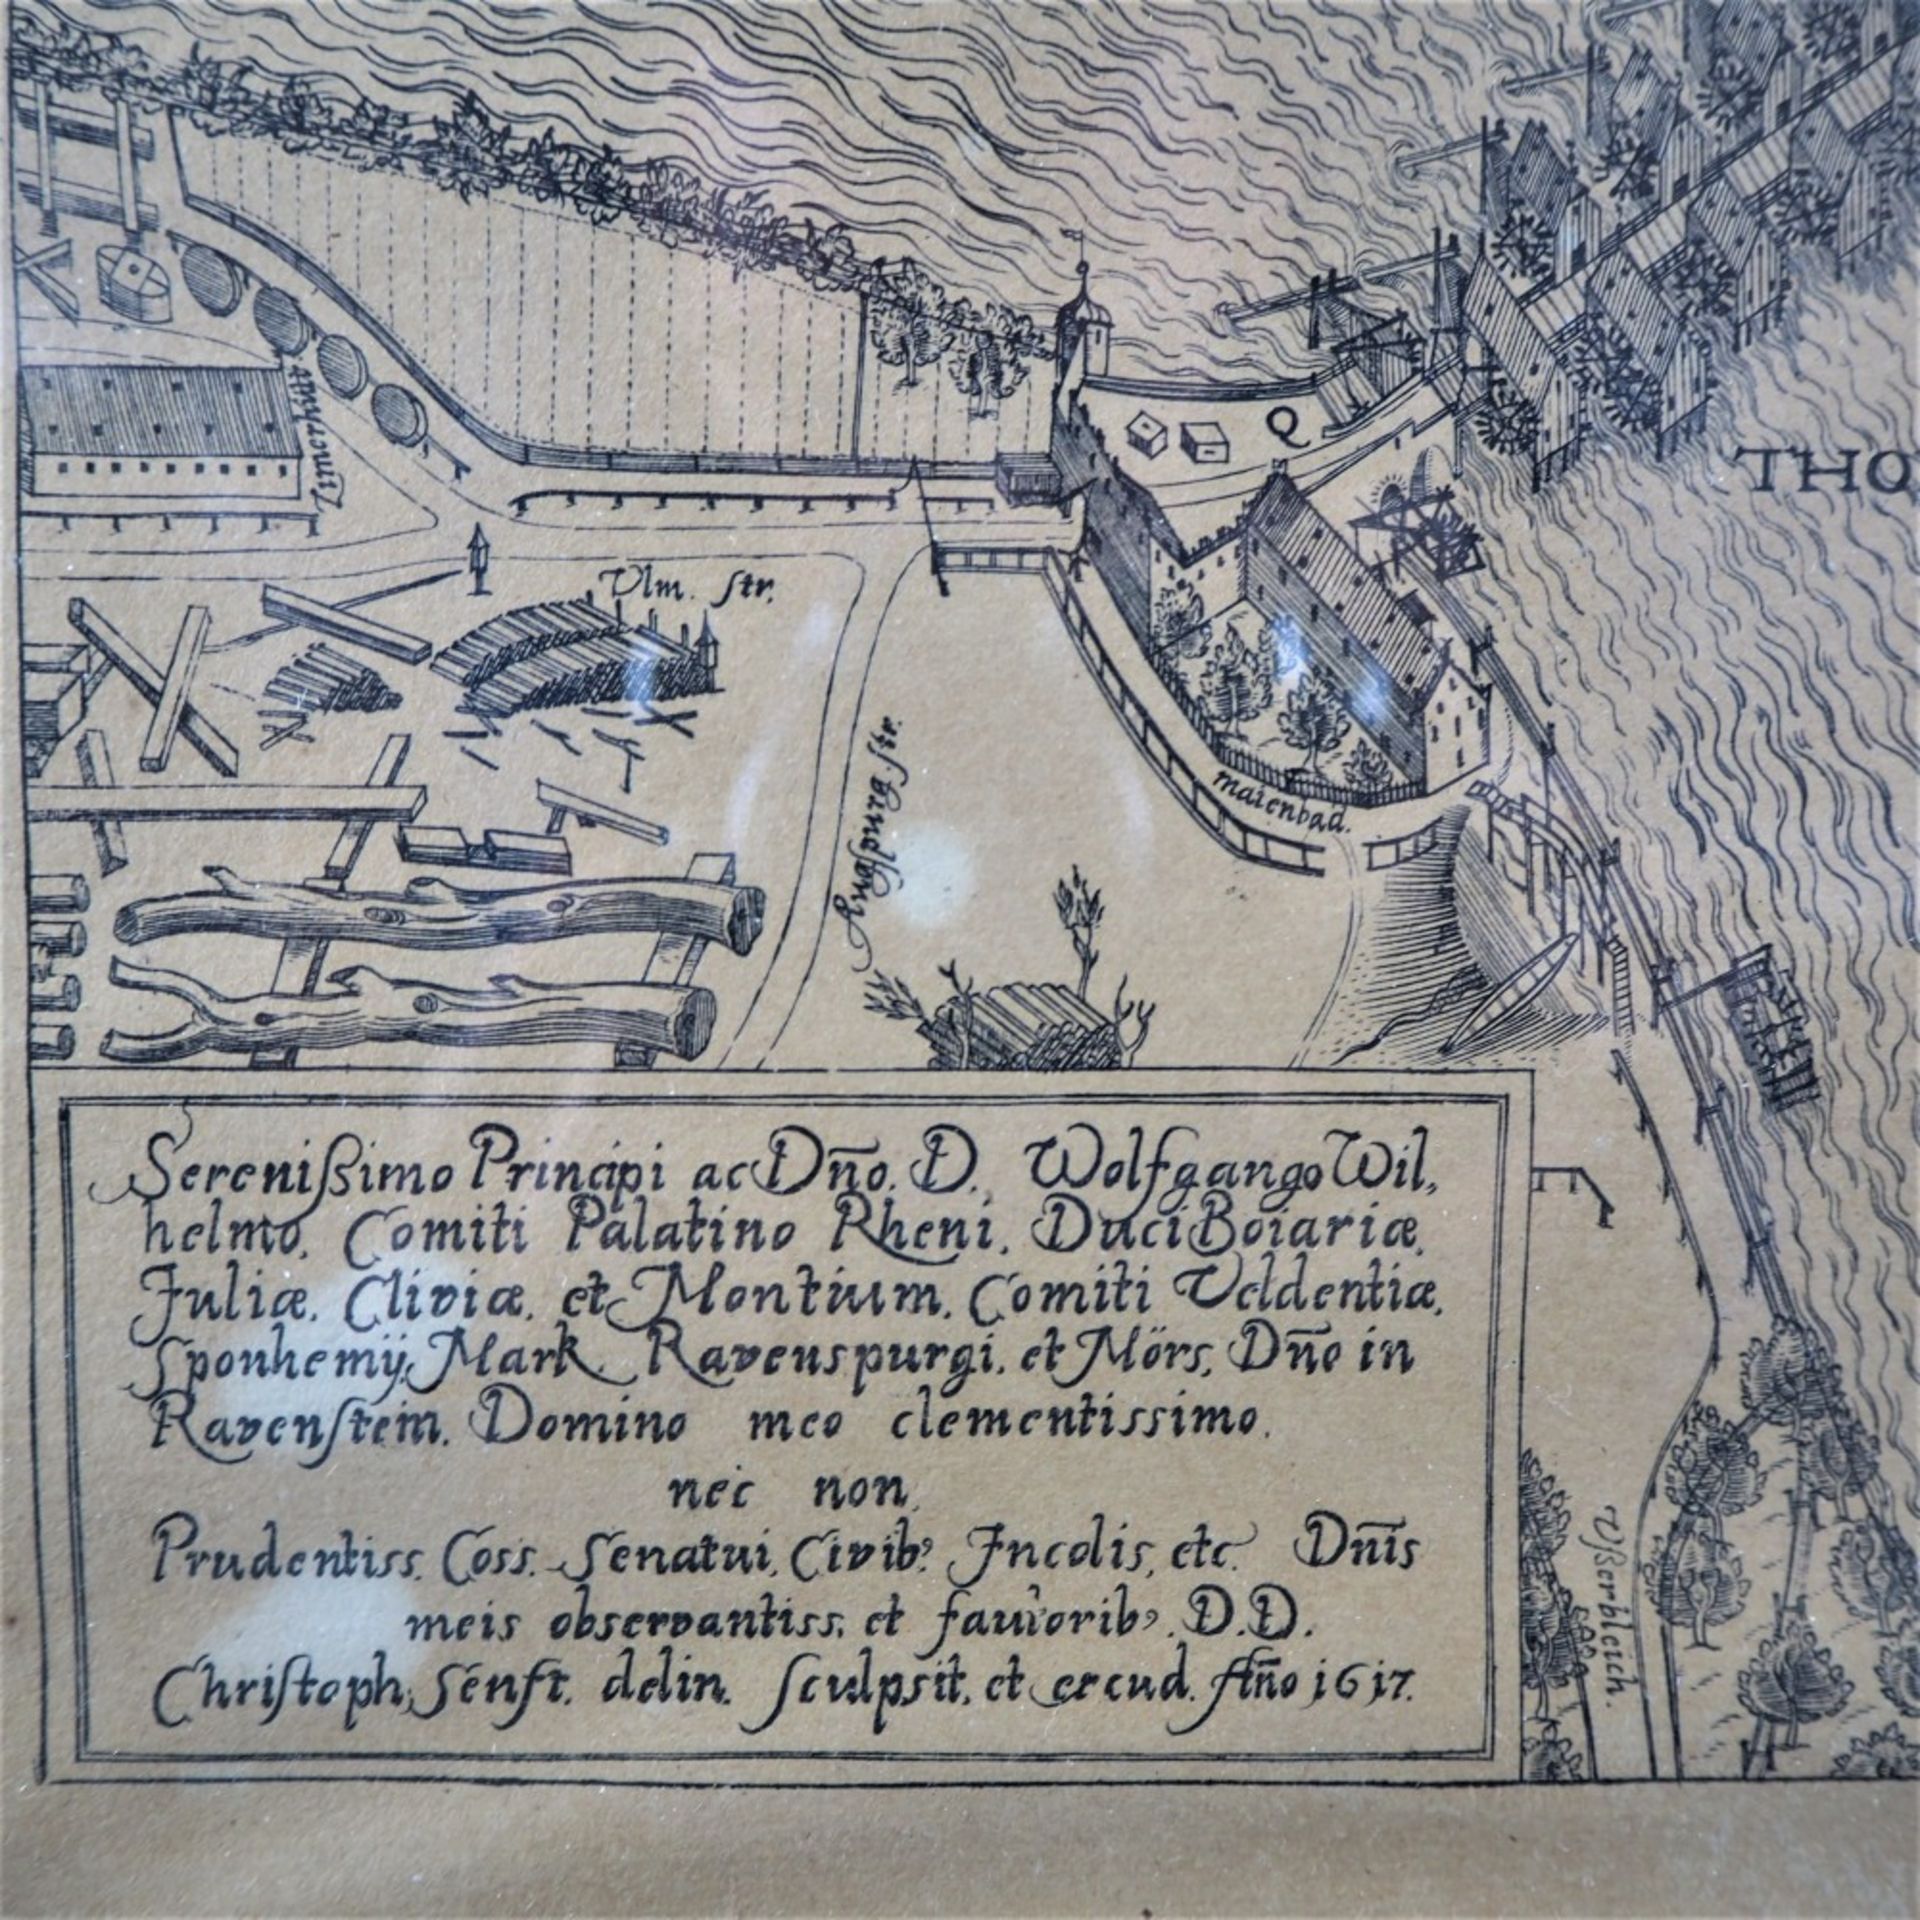 Q
THO
Vlm. ſtr.
Augſpurg. ſtr.
maienbad.
Sereniſsimo Principi ac Dño. D. Wolfgango Wil,
helmo, Comiti Palatino Rheni, Duci Boiariæ,
Juliæ, Cliviæ, et Montium, Comiti Veldentiæ,
Sponhemÿ, Mark, Ravenspurgi, et Mörs, Dño in
Ravenſtein, Domino meo clementissimo.
nec non,
Prudentiss. Coss. Senatui, Civib⁹ Incolis, etc. Dñis
meis observantiss. et fautorib⁹. D.D.
Chriſtoph, Senft. delin. ſculpsit, et excud. Año 1617.
Vßerbleich.